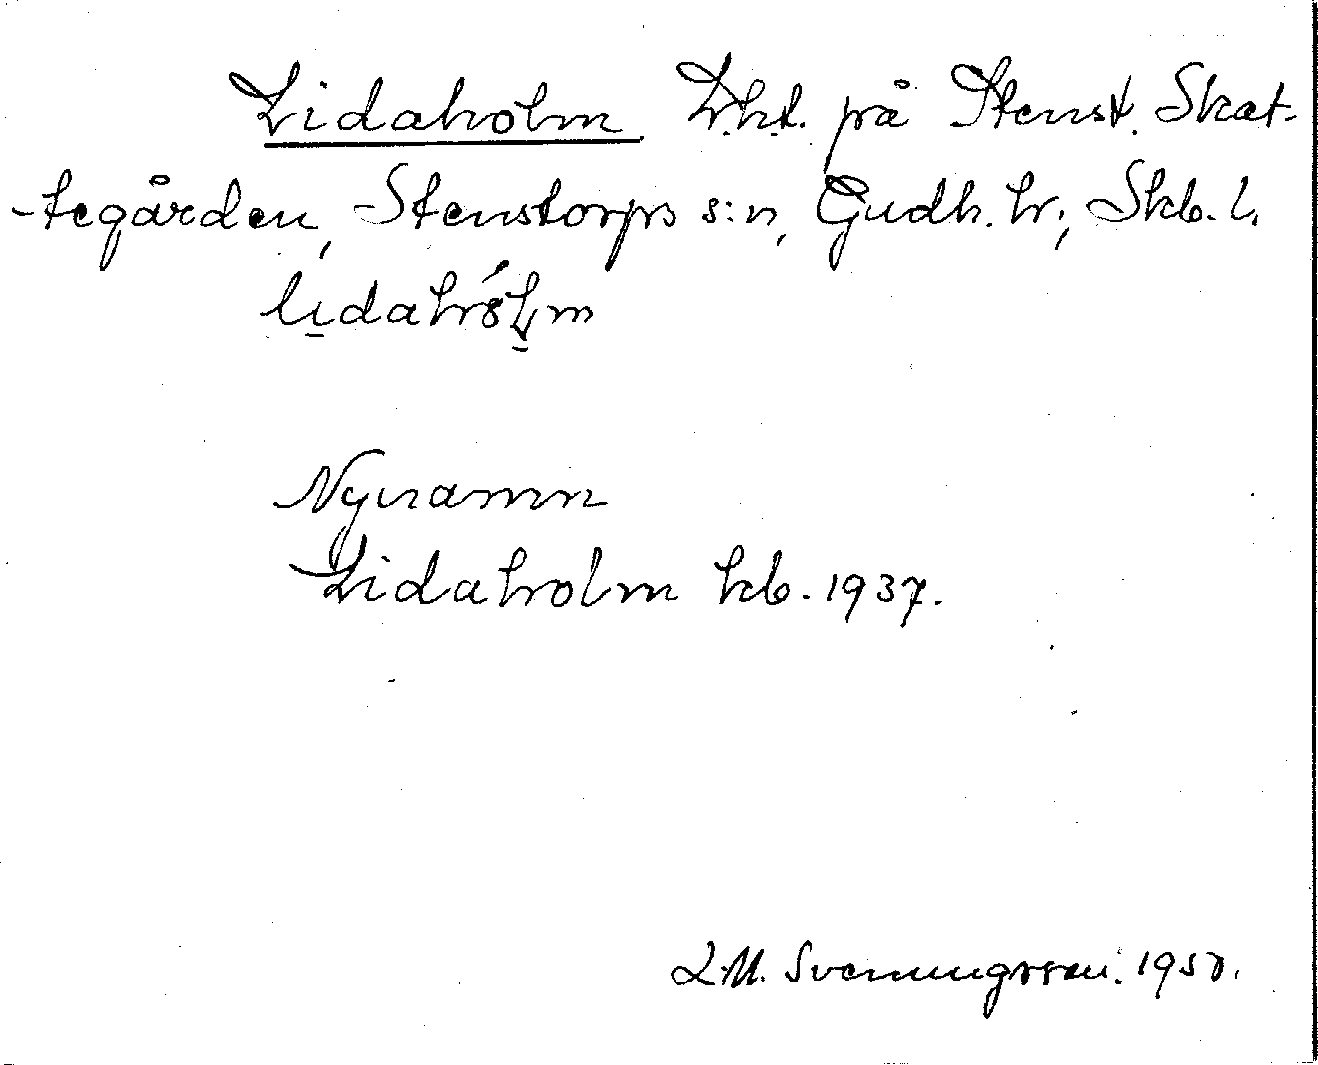 Lidaholm. L.h.t. på Stenst. Skat-
-tegården, Stenstorps s:n, Gudh. hr; Skb. l.
lidahólm
Nynamn
Lidaholm kb. 1937.
L.M. Svenungsson. 1950.